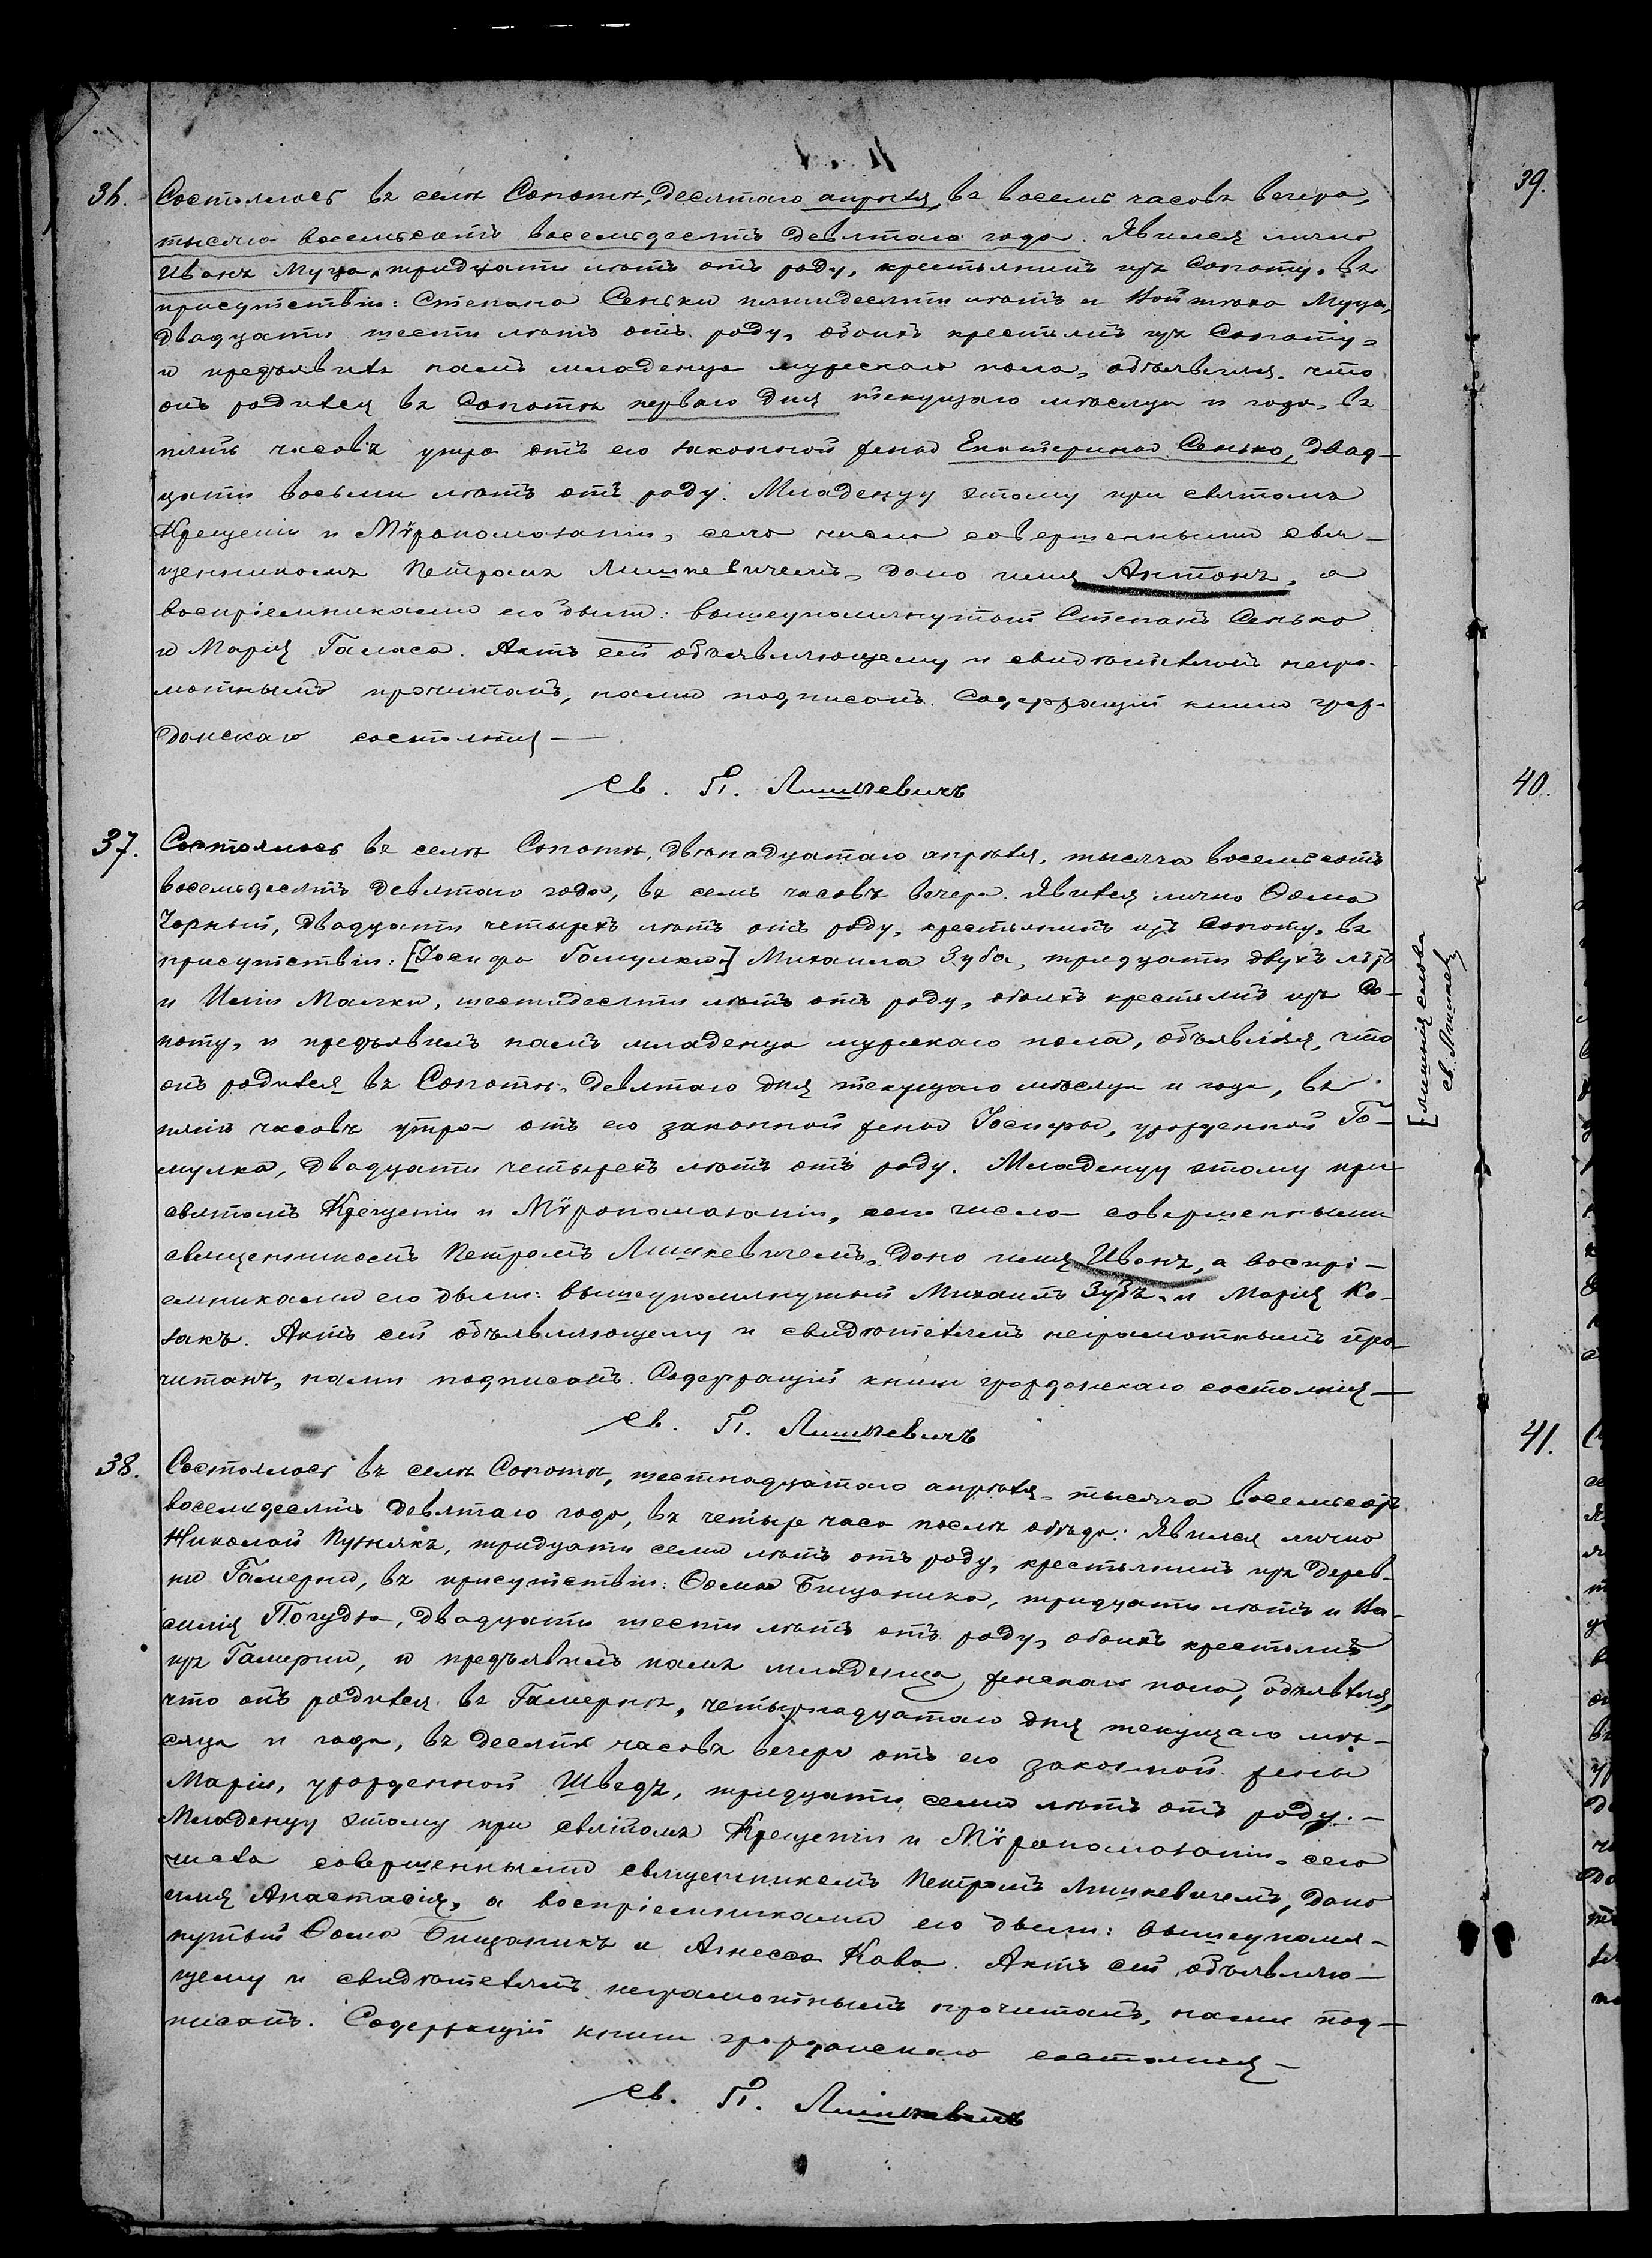 36. Состоялось въ селѣ Сопотѣ, десятаго апрѣля, въ восемь часовъ вечера,
тысяча восемьсотъ восемьдесятъ девятаго года. Явился лично
Иванъ Муца, тридцати лѣтъ отъ роду, крестьянинъ изъ Сопоту, въ
присутствіи: Степана Сенька пятидесяти лѣтъ и Войтѣха Муца,
двадцати шести лѣтъ отъ роду, обоихъ крестьянъ изъ Сопоту,
и предъявилъ намъ младенца мужескаго пола, объявляя, что
онъ родился въ Сопотѣ перваго дня текущаго мѣсяца и года, въ
пять часовъ утра отъ его законной жены Екатерины Сенько, двад-
цати восьми лѣтъ отъ роду. Младенцу этому при святомъ
Крещеніи и Мѵропомазаніи, сего числа совершенными свя-
щенникомъ Петромъ Лишкевичемъ, дано имя Антонъ, а
воспріемниками его были: вышеупомянутый Степанъ Сенько
и Марія Галаса. Актъ сей объявляющему и свидѣтелямъ негра-
мотнымъ прочитанъ, нами подписанъ. Содержащій книги граж-
данскаго состоянія —
Св. П. Лишкевичъ
37. Состоялось въ селѣ Сопотѣ, двѣнадцатаго апрѣля, тысяча восемьсотъ
восемьдесятъ девятаго года, въ семь часовъ вечера. Явился лично Ѳома
Чорный, двадцати четырехъ лѣтъ отъ роду, крестьянинъ изъ Сопоту, въ
присутствіи: [Іосифа Гомулки] Михаила Зуба, тридцати двухъ лѣтъ
и Иліи Малки, шестидесяти лѣтъ отъ роду, обоихъ крестьянъ изъ Со-
поту, и предъявилъ намъ младенца мужескаго пола, объявляя, что
онъ родился въ Сопотѣ, девятаго дня текущаго мѣсяца и года, въ
пять часовъ утра отъ его законной жены Іосифы, урожденной Го-
мулка, двадцати четырехъ лѣтъ отъ роду. Младенцу этому при
святомъ Крещеніи и Мѵропомазаніи, сего числа совершенными
священникомъ Петромъ Лишкевичемъ, дано имя Иванъ, а воспрі-
емниками его были: вышеупомянутый Михаилъ Зубъ и Марія Ко-
закъ. Актъ сей объявляющему и свидѣтелямъ неграмотнымъ про-
читанъ, нами подписанъ. Содержащій книги гражданскаго состоянія —
Св. П. Лишкевичъ
[лишнія слова
св. Лишкев.
38. Состоялось въ селѣ Сопотѣ, шестнадцатаго апрѣля, тысяча восемьсотъ
восемьдесятъ девятаго года, въ четыре часа послѣ обѣда: Явился лично
Николай Пузнякъ, тридцати семи лѣтъ отъ роду, крестьянинъ изъ дерев-
ни Гамерни, въ присутствіи: Ѳомы Бищаника, тридцати лѣтъ и Ва-
силія Погудзя, двадцати шести лѣтъ отъ роду, обоихъ крестьянъ
изъ Гамерни, и предъявилъ намъ младенца женскаго пола, объявляя,
что онъ родился въ Гамернѣ, четырнадцатаго дня текущаго мѣ-
сяца и года, въ десять часовъ вечера отъ его законной жены
Маріи, урожденной Шведъ, тридцати семи лѣтъ отъ роду. —
Младенцу этому при святомъ Крещеніи и Мѵропомазаніи, сего
числа совершенными священникомъ Петромъ Лишкевичемъ, дано
имя Анастасія, а воспріемниками его были: вышеупомя-
нутый Ѳома Бищаникъ и Агнесса Кава. Актъ сей объявляю-
щему и свидѣтелямъ неграмотнымъ прочитанъ, нами под-
писанъ. Содержащій книги гражданскаго состоянія —
Св. П. Лишкевичъ
39.
40.
41.